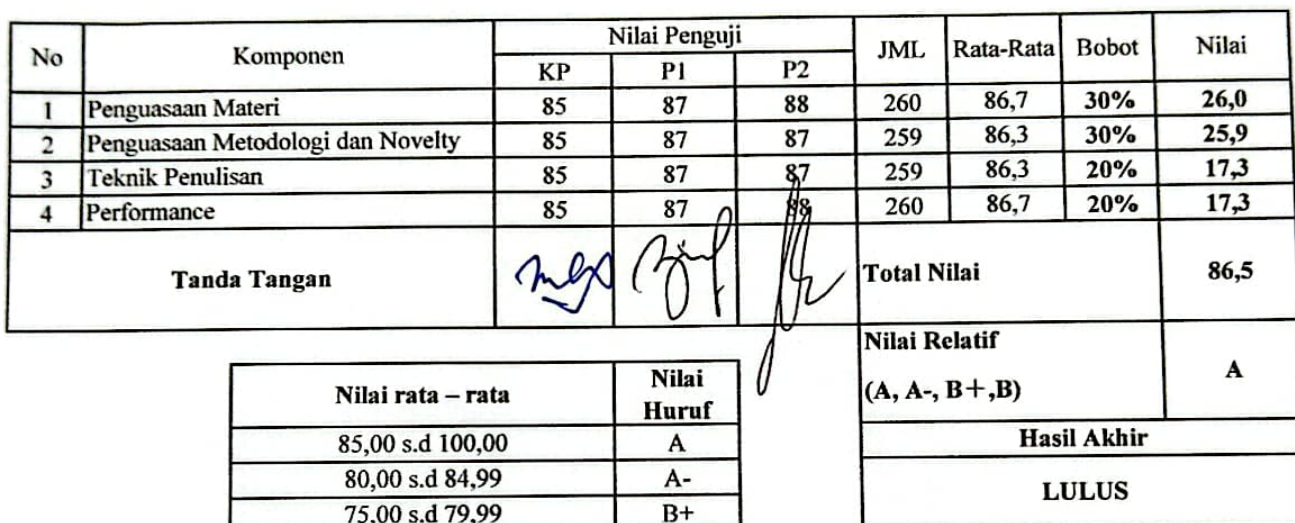 No Komponen Nilai Penguji JML Rata-Rata Bobot Nilai
KP P1 P2
1 Penguasaan Materi 85 87 88 260 86,7 30% 26,0
2 Penguasaan Metodologi dan Novelty 85 87 87 259 86,3 30% 25,9
3 Teknik Penulisan 85 87 87 259 86,3 20% 17,3
4 Performance 85 87 88 260 86,7 20% 17,3
Tanda Tangan Total Nilai 86,5
Nilai Relatif
(A, A-, B+,B) A
Nilai rata – rata Nilai Huruf
Hasil Akhir
85,00 s.d 100,00 A
80,00 s.d 84,99 A-
LULUS
75,00 s.d 79,99 B+